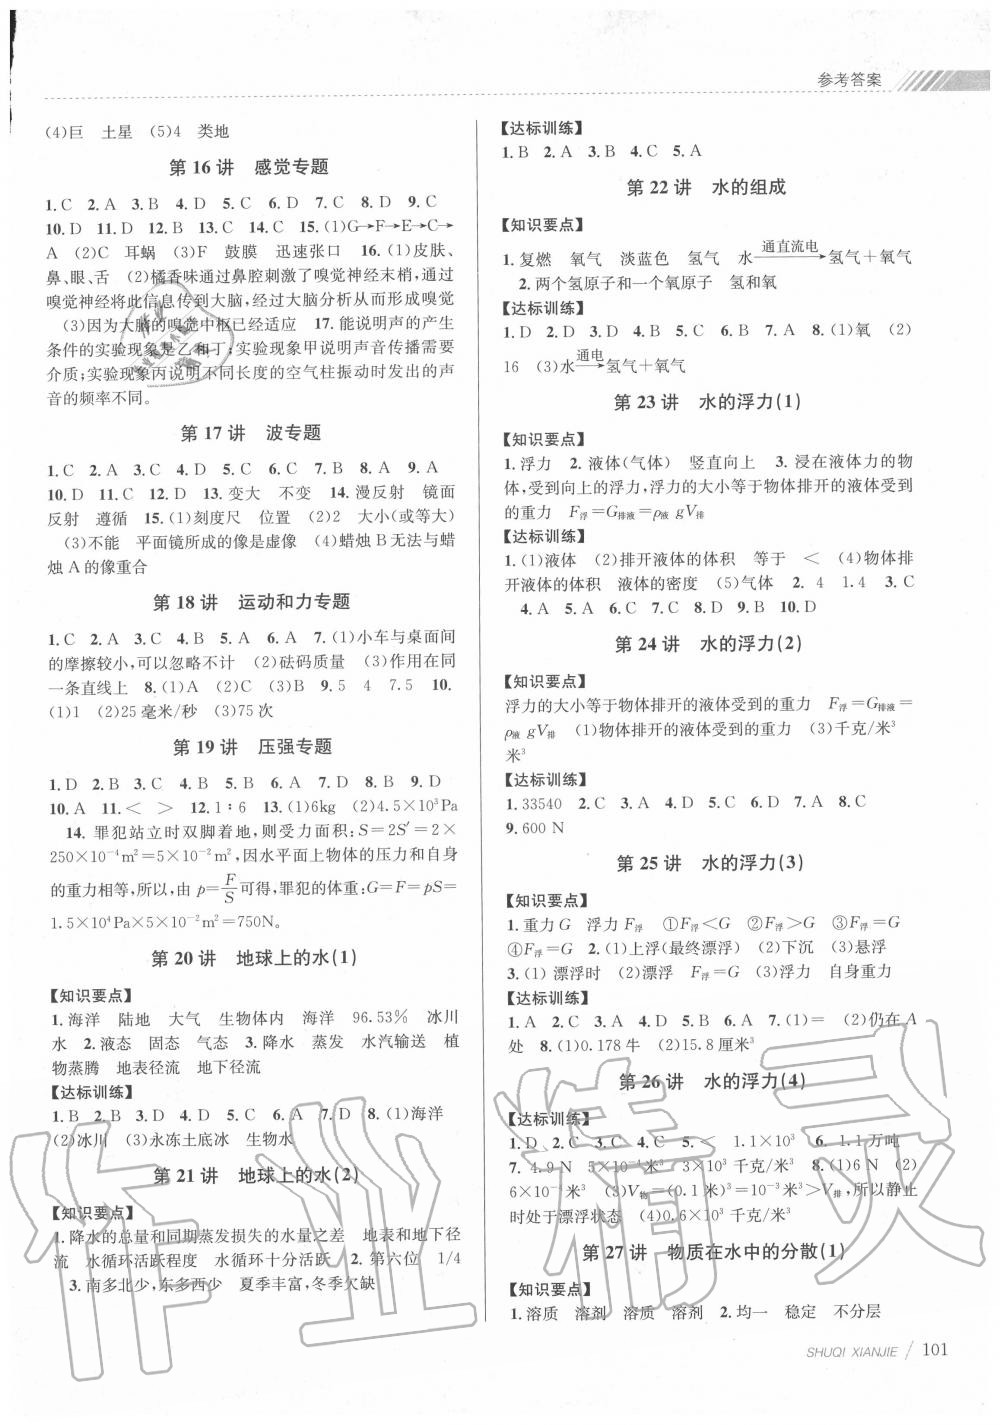 参考答案
(4)巨　土星　(5)4　类地
第 16 讲　感觉专题
1.C　2.A　3.B　4.D　5.C　6.D　7.D　8.D　9.C
10.D　11.D　12.B　13.C　14.C　15.(1)G→F→E→C→
A　(2)C　耳蜗　(3)F　鼓膜　迅速张口　16.(1)皮肤、
鼻、眼、舌　(2)橘香味通过鼻腔刺激了嗅觉神经末梢,通过
嗅觉神经将此信息传到大脑,经过大脑分析从而形成嗅觉
(3)因为大脑的嗅觉中枢已经适应　17.能说明声的产生
条件的实验现象是乙和丁;实验现象甲说明声音传播需要
介质;实验现象丙说明不同长度的空气柱振动时发出的声
音的频率不同。
第 17 讲　波专题
1.C　2.A　3.C　4.D　5.C　6.B　7.D　8.A　9.A
10.D　11.C　12.D　13.变大　不变　14.漫反射　镜面
反射　遵循　15.(1)刻度尺　位置　(2)2　大小(或等大)
(3)不能　平面镜所成的像是虚像　(4)蜡烛 B 无法与蜡
烛 A 的像重合
第 18 讲　运动和力专题
1.C　2.A　3.C　4.B　5.A　6.A　7.(1)小车与桌面间
的摩擦较小,可以忽略不计　(2)砝码质量　(3)作用在同
一条直线上　8.(1)A　(2)C　(3)B　9.5　4　7.5　10.
(1)1　(2)25 毫米/秒　(3)75 次
第 19 讲　压强专题
1.D　2.B　3.C　4.B　5.A　6.A　7.D　8.B　9.D
10.A　11.＜　＞　12.1∶6　13.(1)6kg　(2)4.5×10³Pa
14.罪犯站立时双脚着地,则受力面积:S=2S′=2×
250×10⁻⁴m²=5×10⁻²m²,因水平面上物体的压力和自身
的重力相等,所以,由 p=F/S可得,罪犯的体重:G=F=pS=
1.5×10⁴Pa×5×10⁻²m²=750N。
第 20 讲　地球上的水(1)
【知识要点】
1.海洋　陆地　大气　生物体内　海洋　96.53%　冰川
水　2.液态　固态　气态　3.降水　蒸发　水汽输送　植
物蒸腾　地表径流　地下径流
【达标训练】
1.B　2.B　3.D　4.A　5.C　6.A　7.D　8.(1)海洋
(2)冰川　(3)永冻土底冰　生物水
第 21 讲　地球上的水(2)
【知识要点】
1.降水的总量和同期蒸发损失的水量之差　地表和地下径
流　水循环活跃程度　水循环十分活跃　2.第六位　1/4
3.南多北少,东多西少　夏季丰富,冬季欠缺
【达标训练】
1.B　2.A　3.B　4.C　5.A
第 22 讲　水的组成
【知识要点】
1.复燃　氧气　淡蓝色　氢气　水 通直流电→ 氢气＋氧气
2.两个氢原子和一个氧原子　氢和氧
【达标训练】
1.D　2.D　3.D　4.B　5.C　6.B　7.A　8.(1)氧　(2)
16　(3)水 通电→ 氢气＋氧气
第 23 讲　水的浮力(1)
【知识要点】
1.浮力　2.液体(气体)　竖直向上　3.浸在液体力的物
体,受到向上的浮力,浮力的大小等于物体排开的液体受到
的重力　F浮=G排液=ρ液 gV排
【达标训练】
1.(1)液体　(2)排开液体的体积　等于　＜　(4)物体排
开液体的体积　液体的密度　(5)气体　2.4　1.4　3.C
4.A　5.A　6.C　7.C　8.D　9.B　10.D
第 24 讲　水的浮力(2)
【知识要点】
浮力的大小等于物体排开的液体受到的重力　F浮=G排液=
ρ液 gV排　(1)物体排开的液体受到的重力　(3)千克/米³
米³
【达标训练】
1.33540　2.C　3.A　4.D　5.B　6.D　7.A　8.C
9.600 N
第 25 讲　水的浮力(3)
【知识要点】
1.重力 G　浮力 F浮　①F浮＜G　②F浮＞G　③F浮=G
④F浮=G　2.(1)上浮(最终漂浮)　(2)下沉　(3)悬浮
3.(1)漂浮时　(2)漂浮　F浮=G　(3)浮力　自身重力
【达标训练】
1.A　2.C　3.A　4.D　5.B　6.A　7.(1)=　(2)仍在 A
处　8.(1)0.178 牛　(2)15.8 厘米³
第 26 讲　水的浮力(4)
【达标训练】
1.D　2.C　3.C　4.C　5.＜　1.1×10³　6.1.1 万吨
7.4.9 N　5×10⁻⁴米³　3×10³ 千克/米³　8.(1)6 N　(2)
6×10⁻⁴米³　(3)V物=(0.1 米)³=10⁻³米³＞V排,所以静止
时处于漂浮状态　(4)0.6×10³ 千克/米³
第 27 讲　物质在水中的分散(1)
【知识要点】
1.溶质　溶剂　溶质　溶剂　2.均一　稳定　不分层
SHUQI XIANJIE / 101
作业精灵